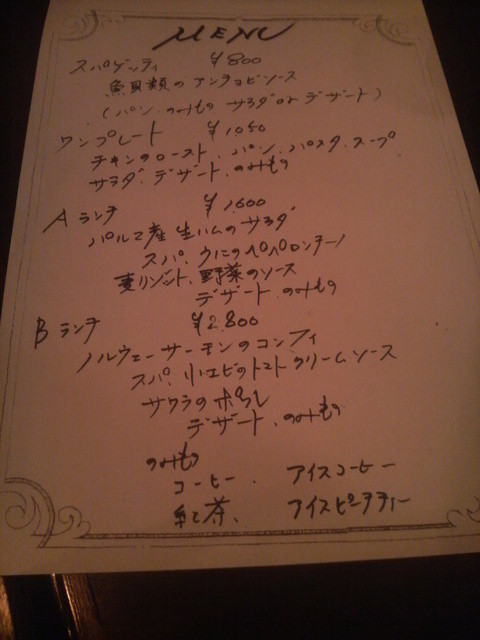 MENU
スパゲッティ ¥800
魚貝類のアンチョビソース
(パン、のみもの サラダorデザート)
ワンプレート ¥1050
チキンのロースト、パン、パスタ、スープ
サラダ、デザート、のみもの
Aランチ ¥1,600
パルマ産 生ハムのサラダ
スパ、ウニのペペロンチーノ
麦リゾット、野菜のソース
デザート、のみもの
Bランチ ¥2,800
ノルウェーサーモンのコンフィ
スパ、小エビのトマトクリームソース
サワラのポワレ
デザート、のみもの
のみもの
コーヒー、 アイスコーヒー
紅茶、 アイスピーチティー